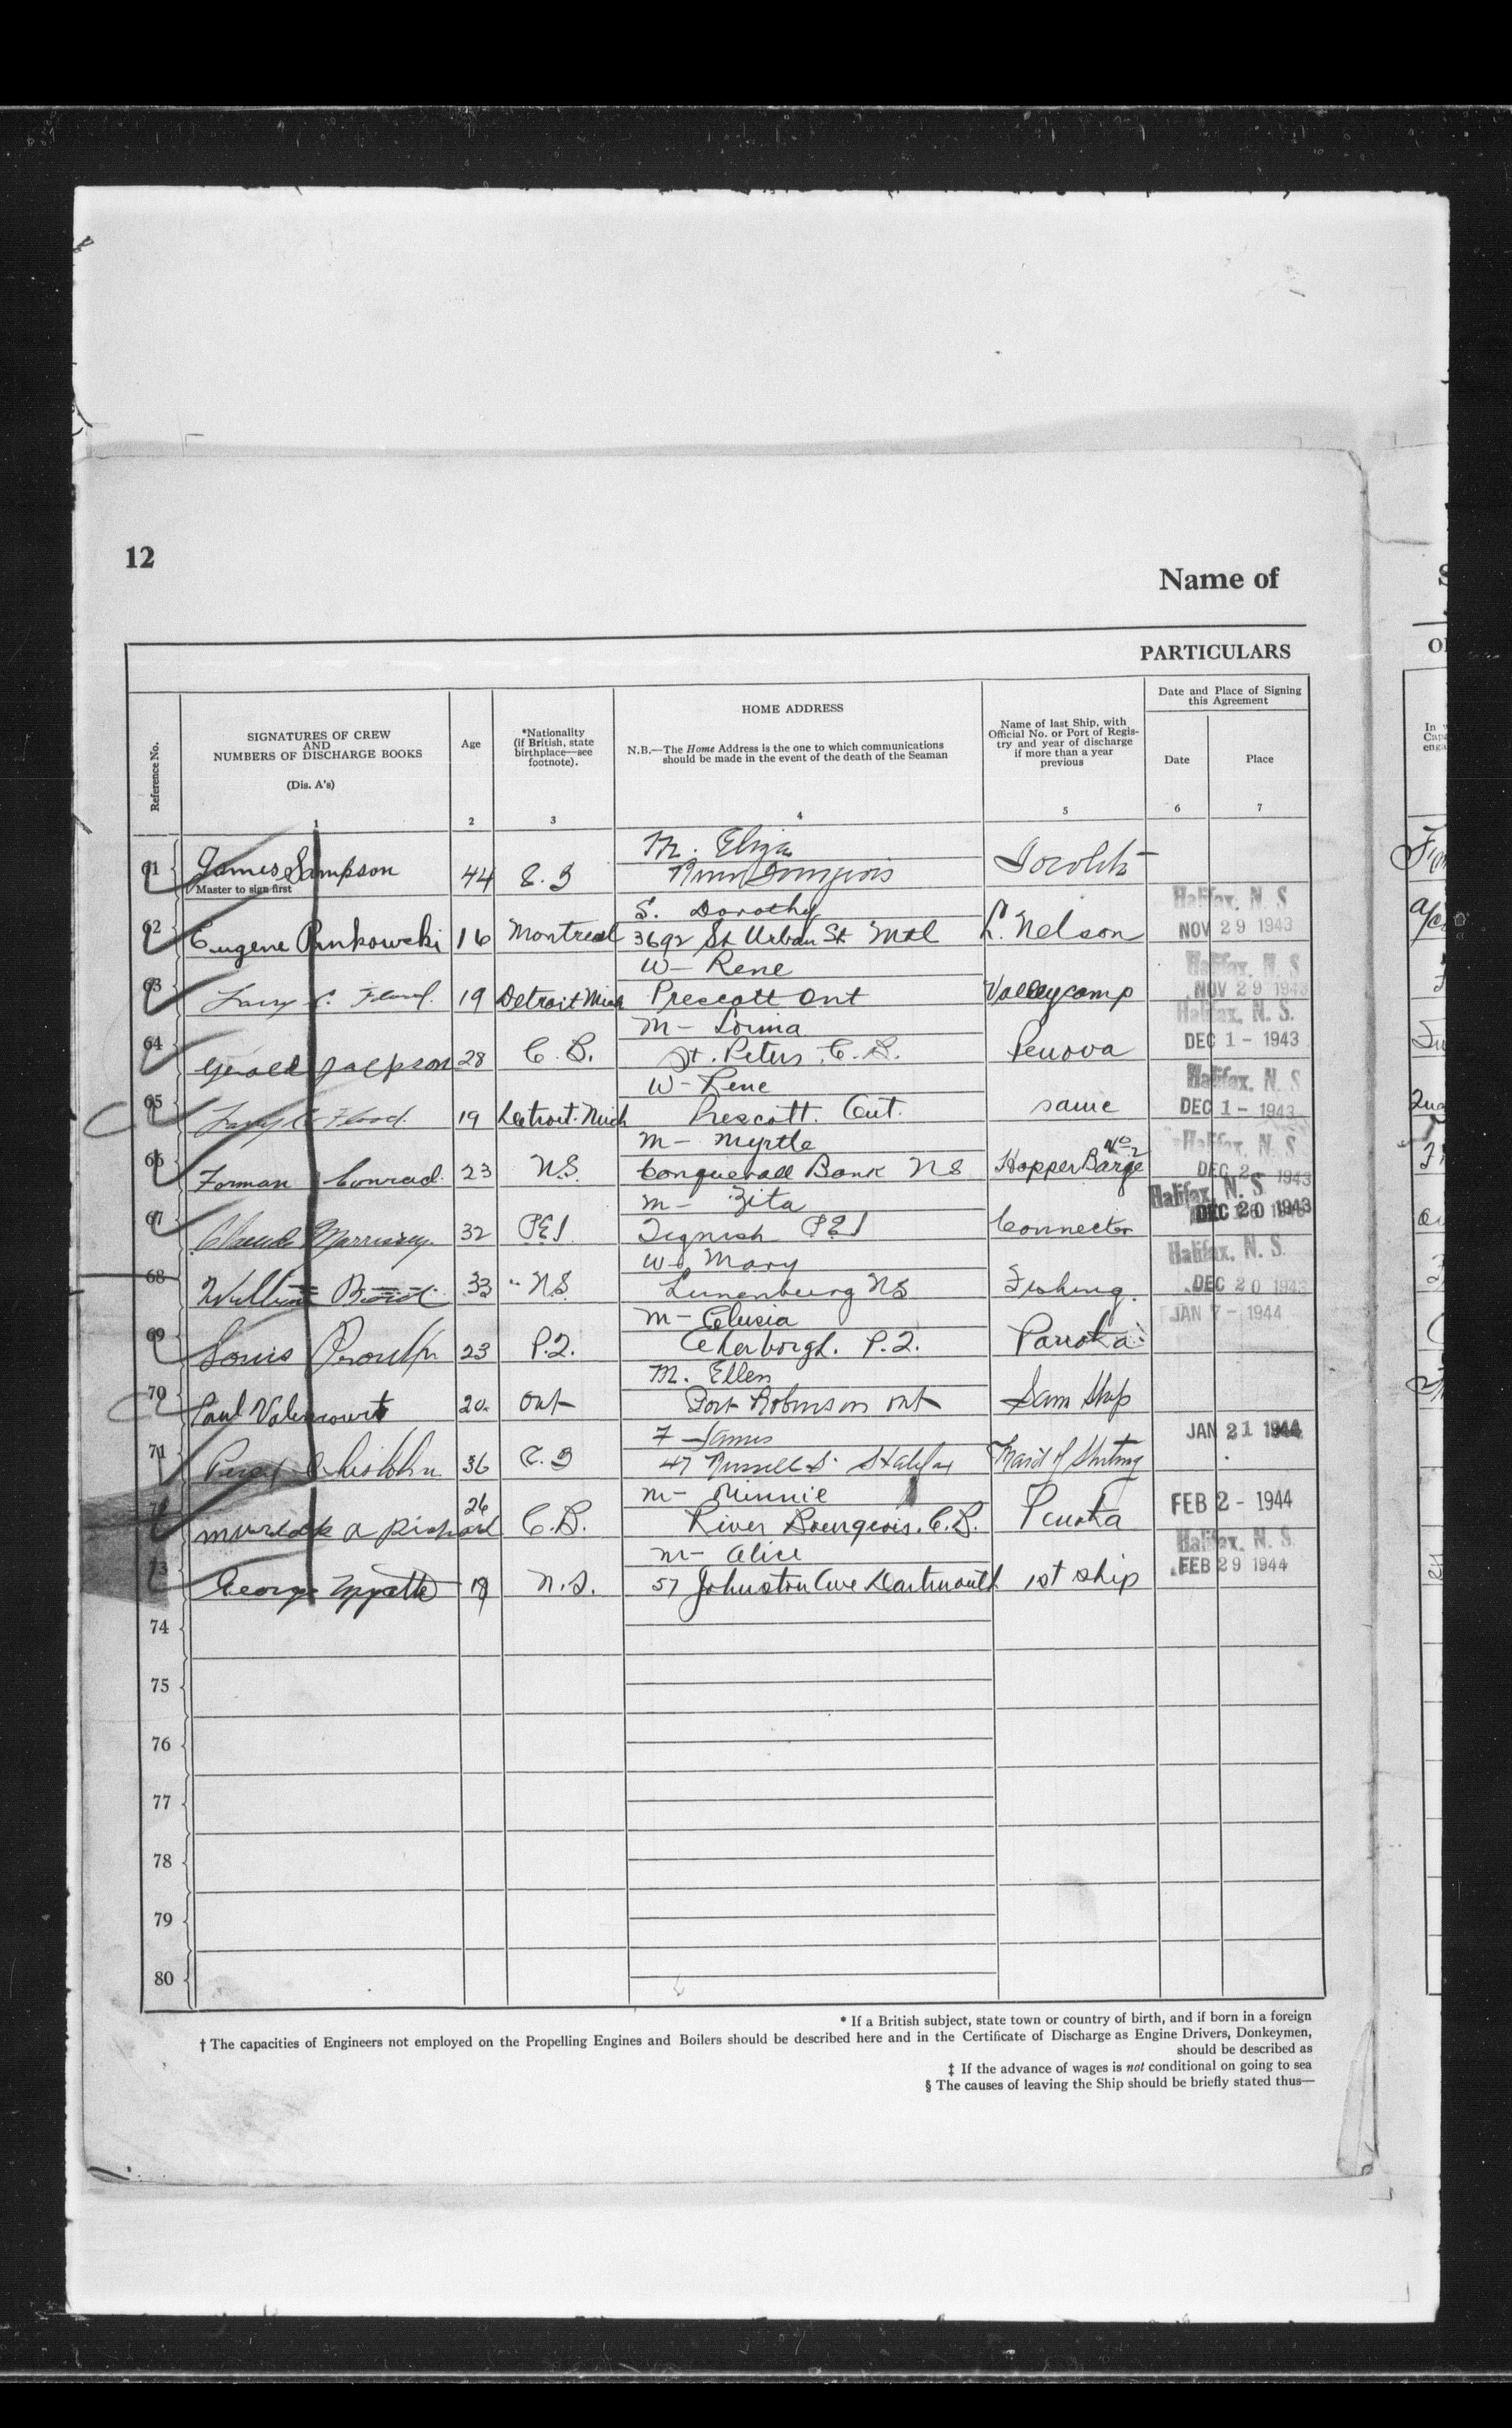 12
Name of
PARTICULARS
Reference No.
SIGNATURES OF CREW
AND
NUMBERS OF DISCHARGE BOOKS
(Dis. A's)
1
Age
2
*Nationality
(if British, state
birthplace—see
footnote).
3
HOME ADDRESS
N.B.—The Home Address is the one to which communications
should be made in the event of the death of the Seaman
4
Name of last Ship, with
Official No. or Port of Regis-
try and year of discharge
if more than a year
previous
5
Date and Place of Signing
this Agreement
Date
6
Place
7
M. Eliza
61 James Sampson 44
Master to sign first
S. Dorothy Halifax, N. S.
62 Eugene 16 Montreal 3692 St Urban St Mtl L. Nelson NOV 29 1943
W- Rene Halifax, N. S
63 19 Detroit Mich Prescott Ont Valleycamp NOV 29 1943
M- Halifax, N. S.
64 Gerald 28 C. B. St. Peters C. B. DEC 1 - 1943
W- Rene Halifax, N. S
65 Flood 19 Detroit Mich Prescott. Ont. same DEC 1 - 1943
M- Myrtle Halifax, N. S.
66 Forman Conrad 23 N.S. Conquerall Bank NS Hopper Barge No 2 DEC 2 - 1943
M- Zita Halifax, N. S.
67 Claude Morrissey 32 PEI Tignish PEI Connector DEC 20 1943
W- Mary Halifax, N. S.
68 33 NS Lunenburg NS Fishing. DEC 20 1943
M- JAN 7 - 1944
69 Louis Proulx 23 P.Q. P.Q.
M. Ellen
70 Paul Valencourt 20 Ont Port Robinson Ont Sam Ship
F James JAN 21 1944
71 Chisholm 36 C. B 47 Russell St Halifax
M- Minnie
72 26 C.B. River Bourgeois. C.B. FEB 2 - 1944
M- Alice Halifax, N. S.
73 George N.S. 57 Johnston Ave Dartmouth 1st ship FEB 29 1944
74
75
76
77
78
79
80
* If a British subject, state town or country of birth, and if born in a foreign
† The capacities of Engineers not employed on the Propelling Engines and Boilers should be described here and in the Certificate of Discharge as Engine Drivers, Donkeymen,
should be described as
‡ If the advance of wages is not conditional on going to sea
§ The causes of leaving the Ship should be briefly stated thus—